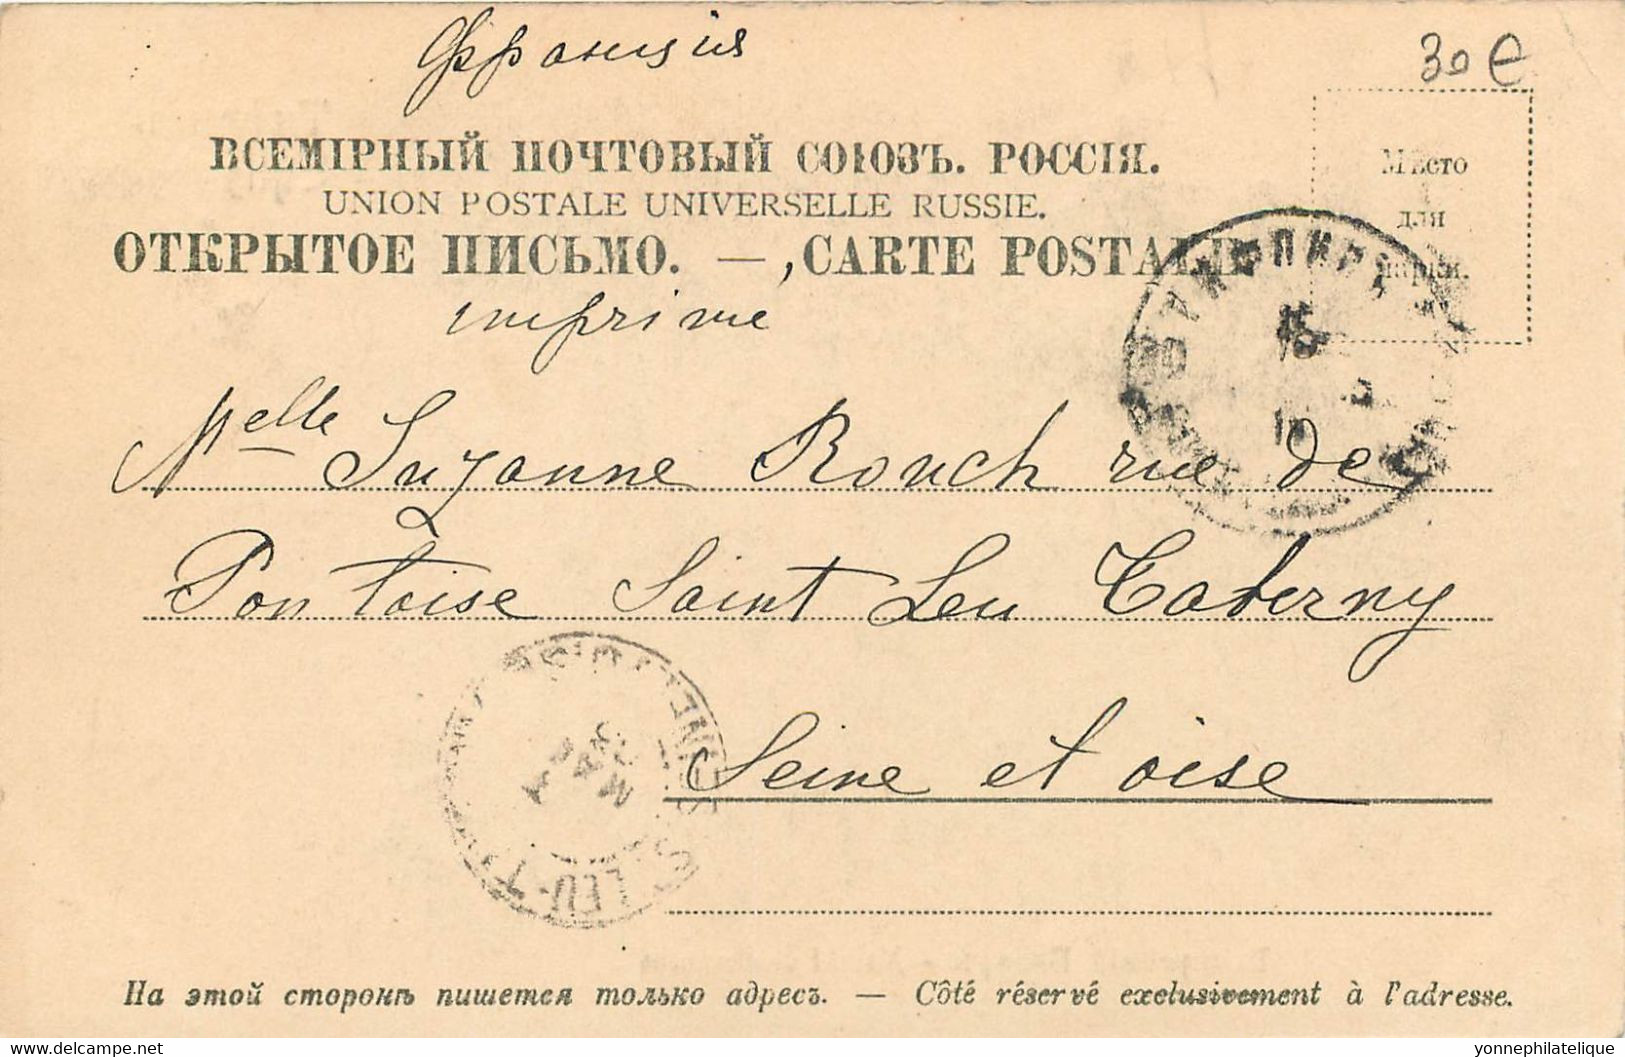 Франція
30 €
ВСЕМІРНЫЙ ПОЧТОВЫЙ СОЮЗЪ. РОССІЯ.
UNION POSTALE UNIVERSELLE RUSSIE.
ОТКРЫТОЕ ПИСЬМО. — CARTE POSTALE
Мѣсто
для
марки.
imprime
Melle Suzanne Rouch rue de
Pontoise Saint Leu Taberny
Seine et oise
St LEU-T
На этой сторонѣ пишется только адресъ. — Côté réservé exclusivement à l'adresse.
delcampe.net
yonnephilatelique